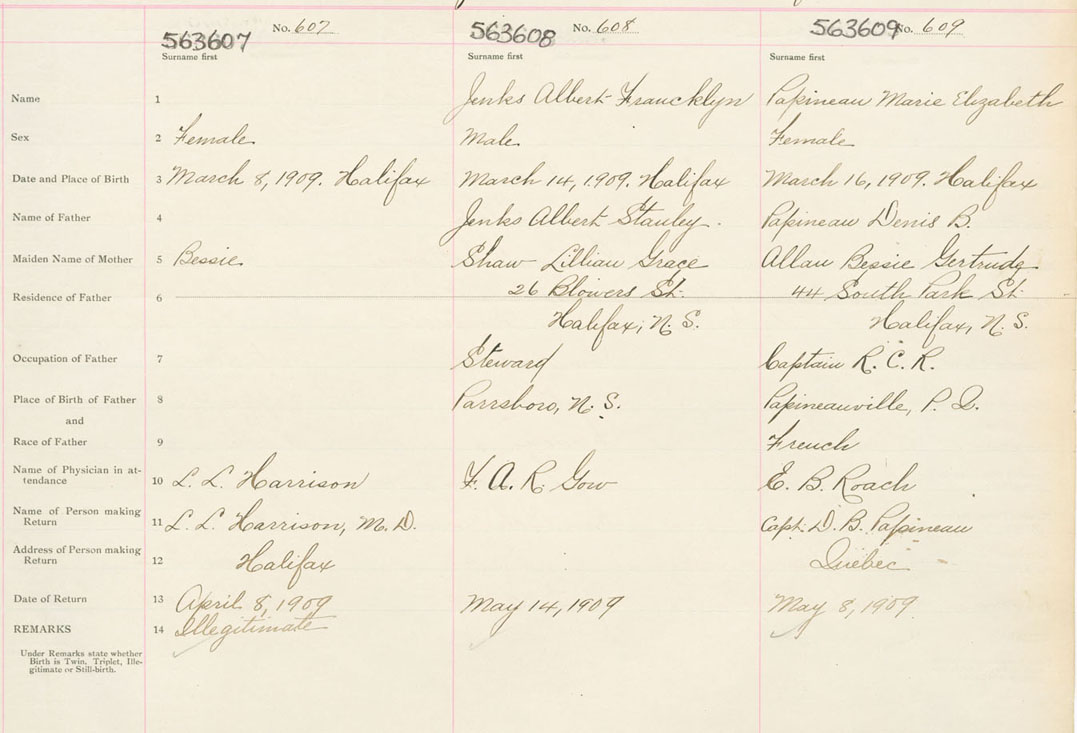 No. 607 No. 608 No. 609
563607 563608 563609
Surname first Surname first Surname first
Name 1 Jenks Albert Francklyn Papineau Marie Elizabeth
Sex 2 Female Male Female
Date and Place of Birth 3 March 8, 1909. Halifax March 14, 1909. Halifax March 16, 1909. Halifax
Name of Father 4 Jenks Albert Stanley. Papineau Denis B.
Maiden Name of Mother 5 Bessie Shaw Lillian Grace Allan Bessie Gertrude
Residence of Father 6 26 Blowers St. 44 South Park St.
Halifax, N. S. Halifax, N. S.
Occupation of Father 7 Steward Captain R. C. R.
Place of Birth of Father 8 Parrsboro, N. S. Papineauville, P. Q.
and
Race of Father 9 French
Name of Physician in at-
tendance 10 L. L. Harrison F. A. R. Gow E. B. Roach
Name of Person making
Return 11 L. L. Harrison, M. D. Capt. D. B. Papineau
Address of Person making
Return 12 Halifax Quebec
Date of Return 13 April 8, 1909 May 14, 1909 May 8, 1909
REMARKS 14 Illegitimate
Under Remarks state whether
Birth is Twin, Triplet, Ille-
gitimate or Still-birth.